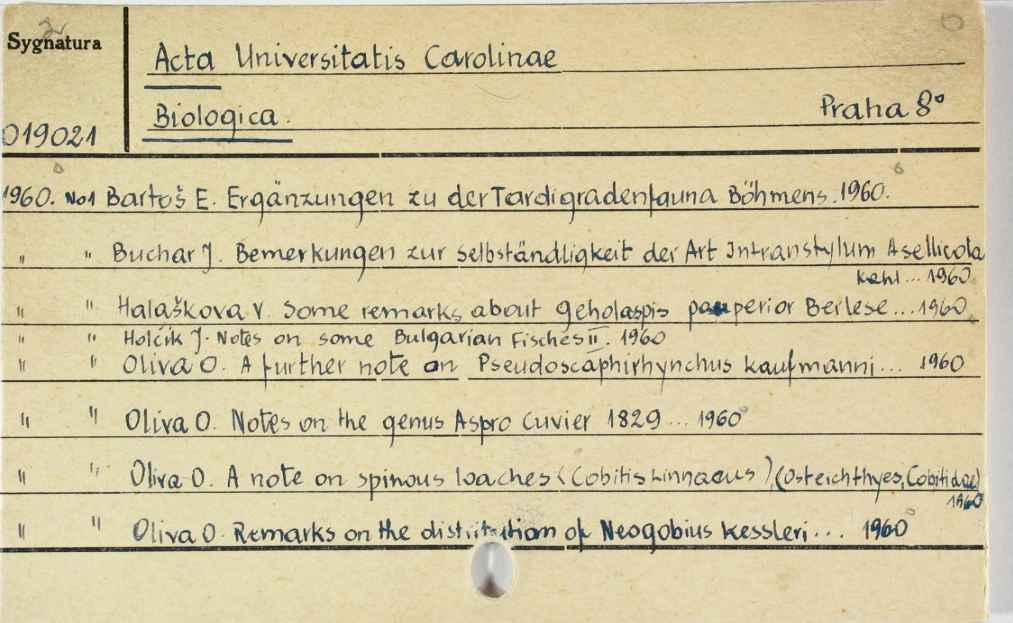 Sygnatura
Acta Universitatis Carolinae
Biologica.
Praha 8°
019021
1960. No1 Bartoš E. Ergänzungen zu der Tardigradenfauna Böhmens. 1960.
" " Buchar J. Bemerkungen zur Selbständligkeit der Art Intranstylum Asellicola
Kehl... 1960
" " Halaškova V. Some remarks about Geholaspis pauperior Berlese... 1960
" " Holčik J. Notes on some Bulgarian Fisches II. 1960
" " Oliva O. A further note on Pseudoscaphirhynchus Kaufmanni... 1960
" " Oliva O. Notes on the genus Aspro Cuvier 1829... 1960
" " Oliva O. A note on spinous loaches (Cobitis Linnaeus), (Osteichthyes, Cobitidae)
1960
" " Oliva O. Remarks on the distribution of Neogobius Kessleri... 1960